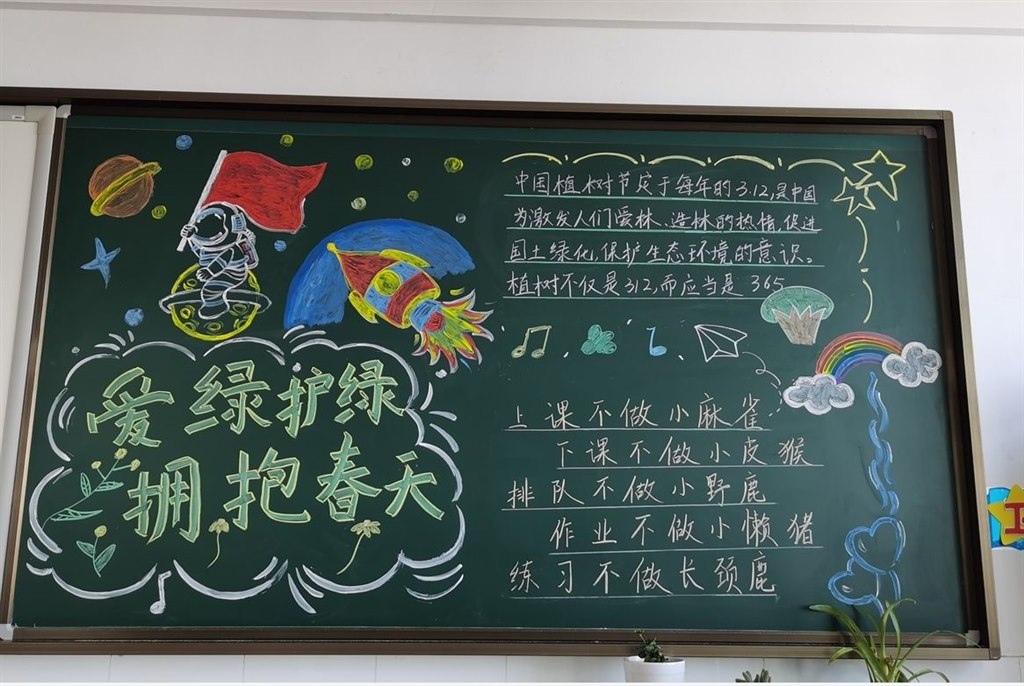 爱绿护绿
拥抱春天
中国植树节定于每年的3.12,是中国
为激发人们爱林、造林的热情,促进
国土绿化,保护生态环境的意识。
植树不仅是312,而应当是 365
上课不做小麻雀
下课不做小皮猴
排队不做小野鹿
作业不做小懒猪
练习不做长颈鹿